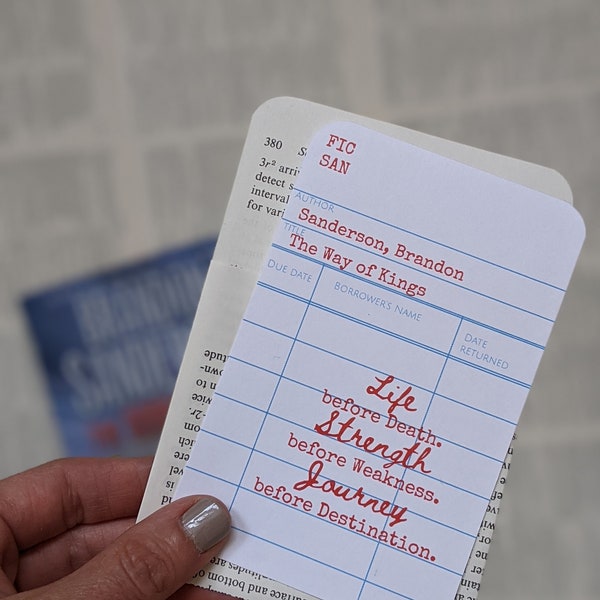 380
3r² arri
detect s
interval
for vari
FIC
SAN
AUTHOR
Sanderson, Brandon
TITLE
The Way of Kings
DUE DATE
BORROWER'S NAME
DATE
RETURNED
Life
before Death.
Strength
before Weakness.
Journey
before Destination.